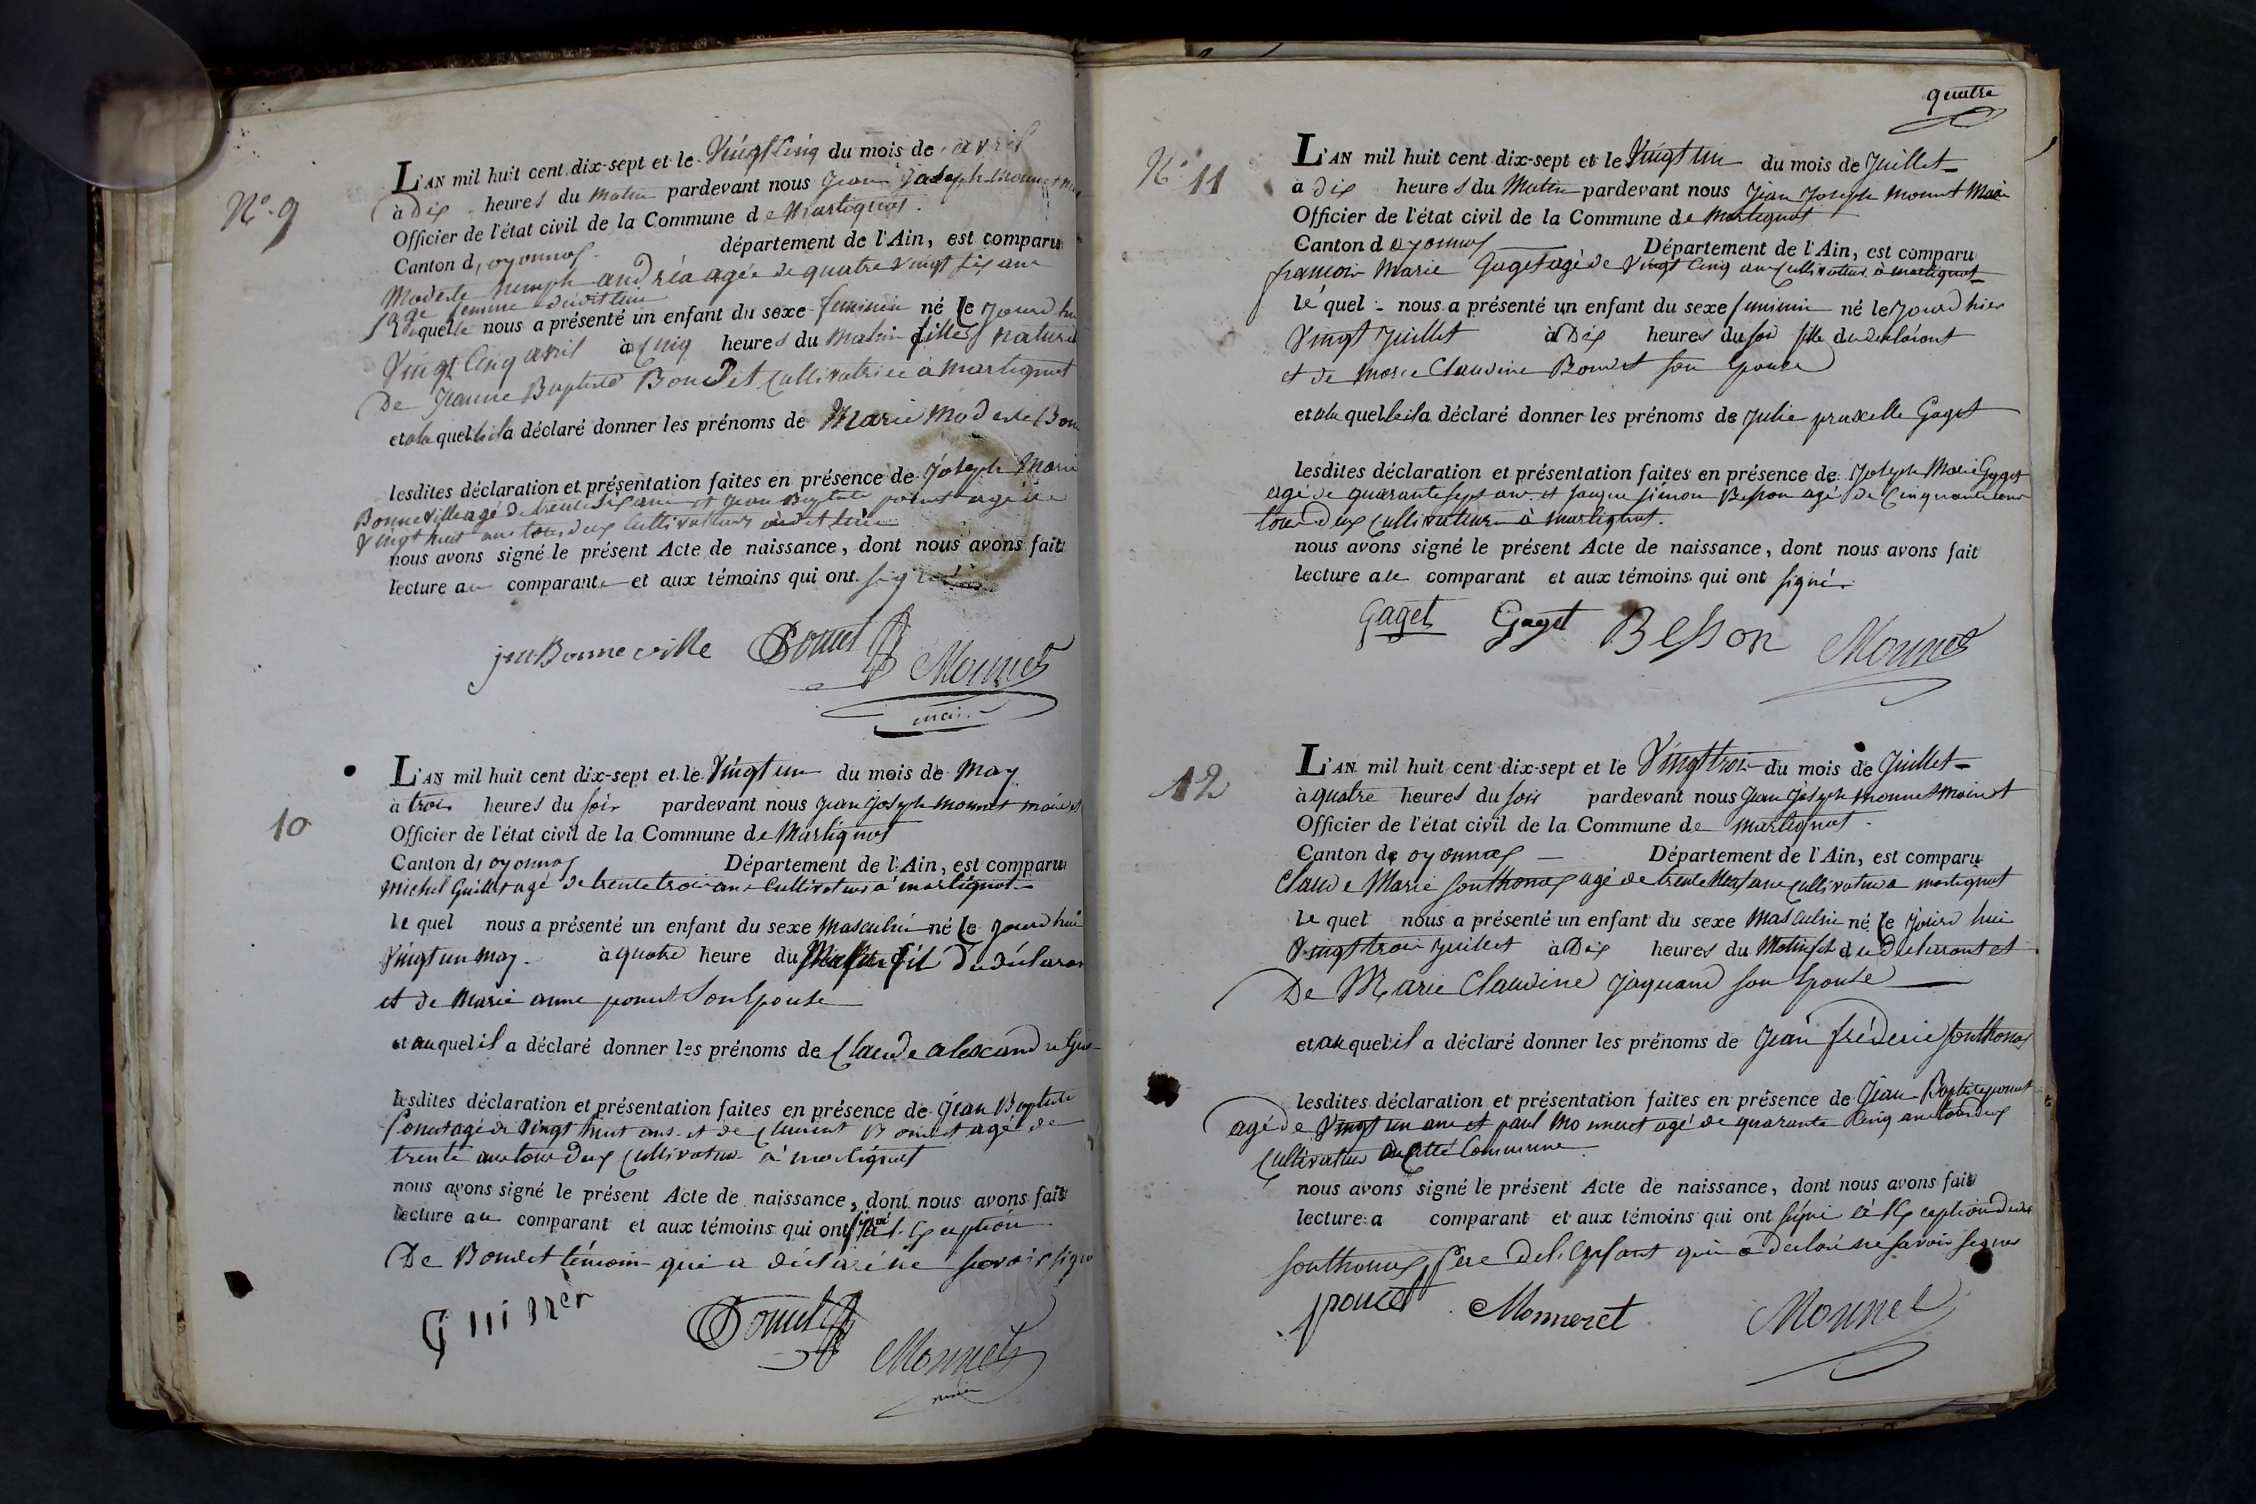 N.° 9
L'AN mil huit cent dix-sept et le Vingt Cinq du mois de avril
à Dix heures du matin pardevant nous Jean Joseph Monnet
Officier de l'état civil de la Commune de Martignat.
Canton d'oyonnas. département de l'Ain, est comparu
Modeste andréa agée de quatre vingt six ans
sage femme dudit lieu
laquelle nous a présenté un enfant du sexe feminin né le jourd'hui
Vingt Cinq avril à Cinq heures du Matin fille naturel
De Jeanne Baptiste Boudet Cultivatrice à Martignat
et a la quelle il a déclaré donner les prénoms de Marie Modeste
lesdites déclaration et présentation faites en présence de Joseph Marie
Bonneville agé de trente six ans et Jean Baptiste poncet agé de
Vingt huit ans tous deux Cultivateurs audit lieu
nous avons signé le présent Acte de naissance, dont nous avons fait
lecture au comparante et aux témoins qui ont signé
jm Bonneville Poncet Monnet
maire
10
L'AN mil huit cent dix-sept et le Vingt un du mois de May
à trois heures du soir pardevant nous Jean Joseph Monnet maire et
Officier de l'état civil de la Commune de Martignat
Canton d'oyonnas Département de l'Ain, est comparu
Michel Guillet agé de trente trois ans Cultivateur à martignat
le quel nous a présenté un enfant du sexe Masculin né le jourd'hui
Vingt un may. à quatre heure du Matin fils du déclarant
et de Marie anne poncet Son Epouse
et au quel il a déclaré donner les prénoms de Claude alexandre
lesdites déclaration et présentation faites en présence de Jean Baptiste
Poncet agé de Vingt huit ans et de Clément Boudet agé de
trente ans tous deux Cultivateurs à martignat
nous avons signé le présent Acte de naissance, dont nous avons fait
lecture au comparant et aux témoins qui ont signé à l'Exception
De Boudet témoin qui a déclaré ne savoir signer
Poncet Monnet
maire
quatre
N° 11
L'AN mil huit cent dix-sept et le Vingt un du mois de Juillet
à dix heures du Matin pardevant nous Jean Joseph Monnet Maire
Officier de l'état civil de la Commune de Martignat
Canton d'oyonnas Département de l'Ain, est comparu
françois Marie Gaget agé de Vingt Cinq ans Cultivateur à martignat
le quel nous a présenté un enfant du sexe feminin né le jourd hier
Vingt Juillet à Dix heures du soir fille du déclarant
et de Marie Claudine Boudet son Epouse
et a la quelle il a déclaré donner les prénoms de Julie praxelle Gaget
lesdites déclaration et présentation faites en présence de Joseph Marie Gaget
agé de quarante sept ans et Jaque Simon Besson agé de Cinquante ans
tous deux Cultivateurs à martignat.
nous avons signé le présent Acte de naissance, dont nous avons fait
lecture a le comparant et aux témoins qui ont signé.
Gaget Gaget Besson Monnet
12
L'AN mil huit cent dix-sept et le Vingt trois du mois de Juillet
à quatre heures du soir pardevant nous Jean Joseph Monnet maire et
Officier de l'état civil de la Commune de martignat.
Canton de oyonnas Département de l'Ain, est comparu
Claude Marie Southonax agé de trente neuf ans Cultivateur a martignat
le quel nous a présenté un enfant du sexe Masculin né le jourd'hui
Vingt trois Juillet à Dix heures du Matin fils du declarant et
De Marie Claudine Jaquand son Epouse
et au quel il a déclaré donner les prénoms de Jean fréderic Southonax
lesdites déclaration et présentation faites en présence de Jean Baptiste poncet
agé de Vingt un ans et paul Monneret agé de quarante Cinq ans tous deux
Cultivateurs de Cette Commune.
nous avons signé le présent Acte de naissance, dont nous avons fait
lecture a comparant et aux témoins qui ont signé à l'Exception dudit
Southonax Père de l'Enfant qui a déclaré ne savoir signer
poncet Monneret Monnet